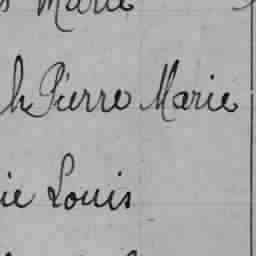 Marie
h Pierre Marie
ie Louis